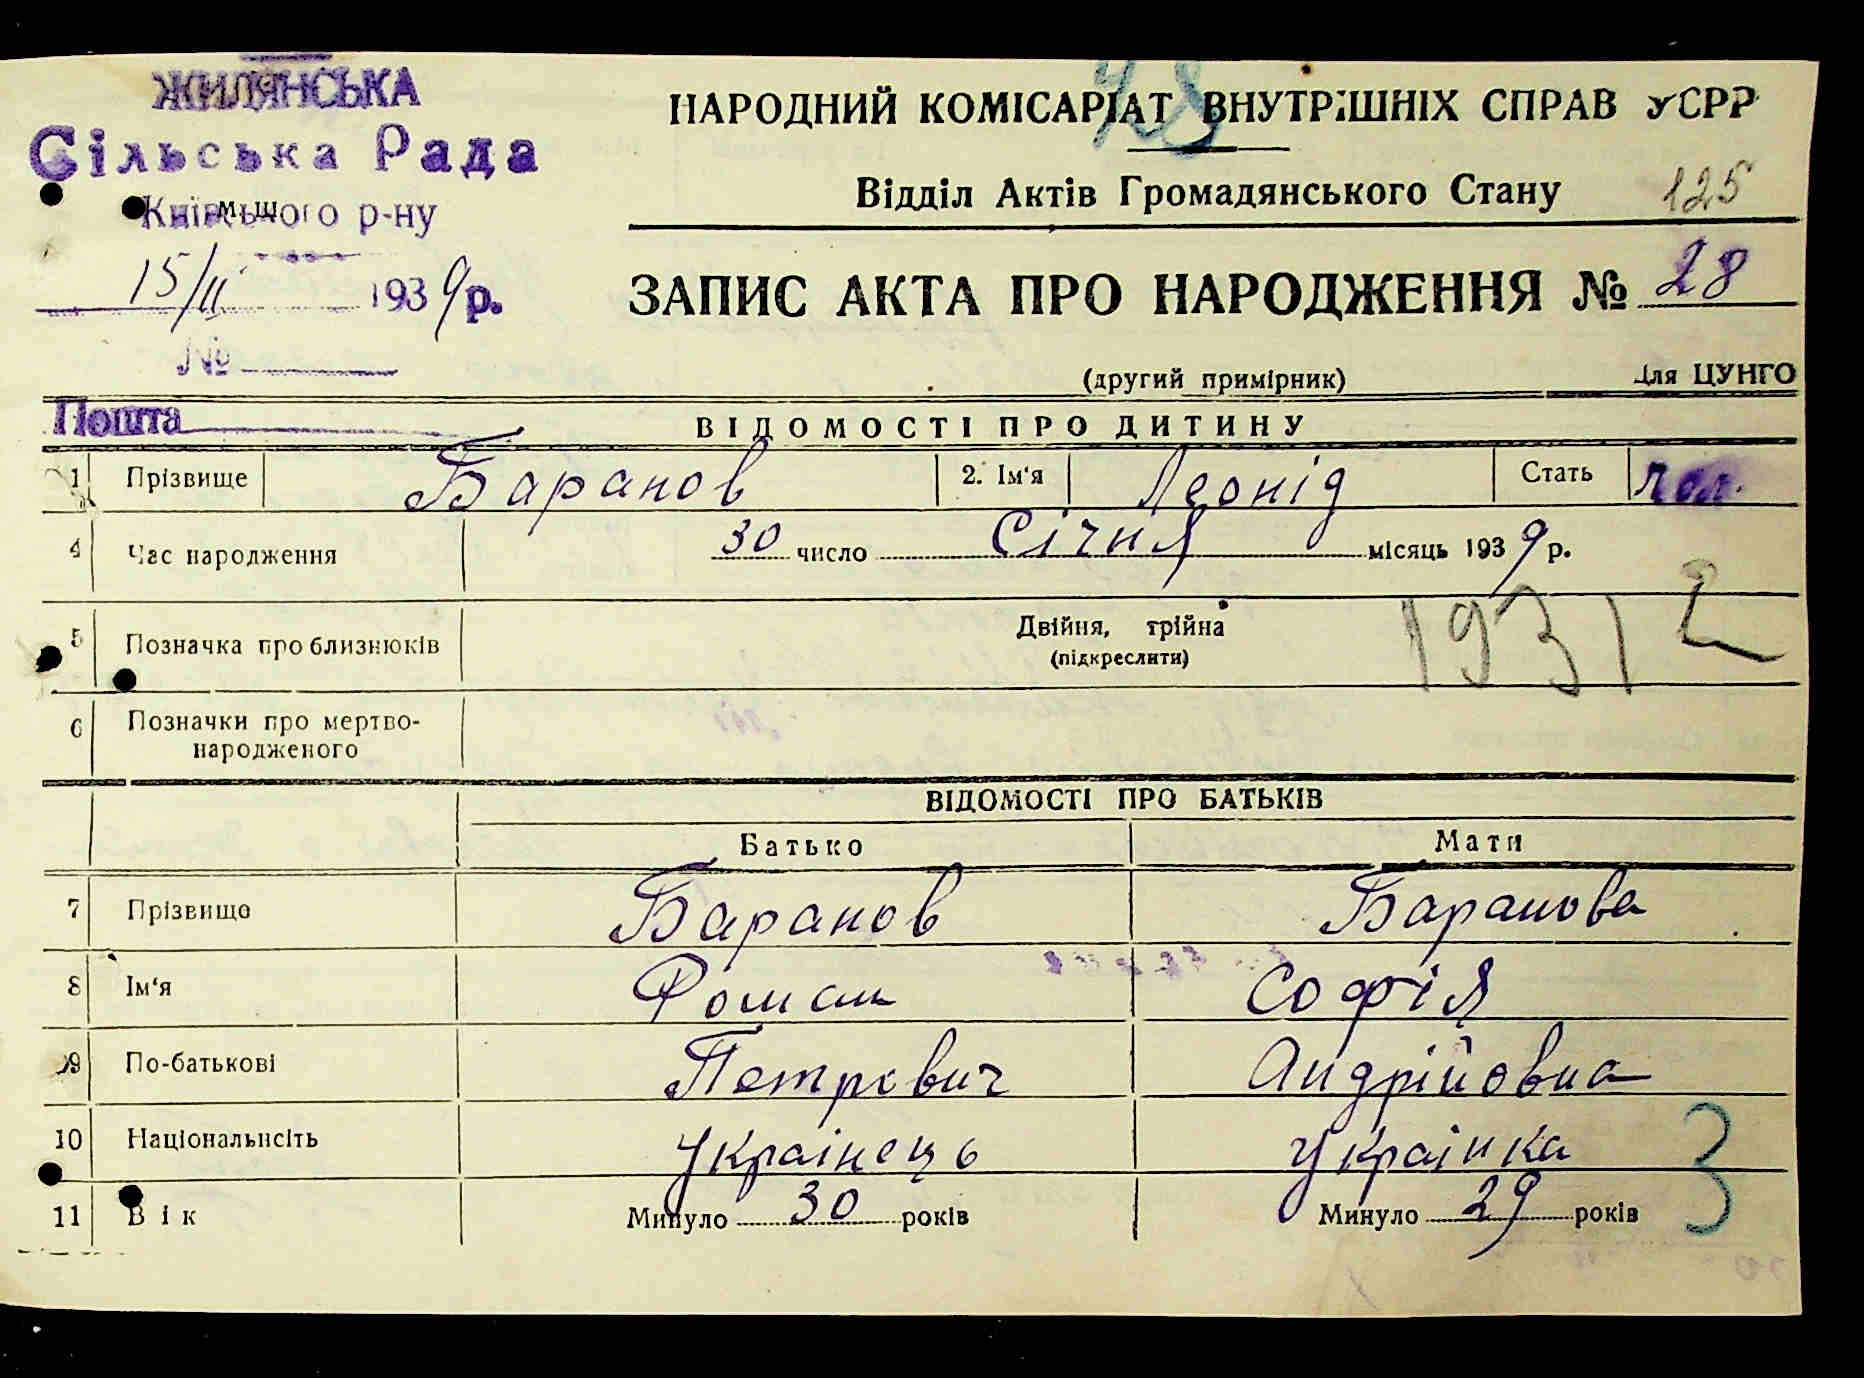 ЖИЛЯНСЬКА
Сільська Рада
Київського р-ну
15/II 1939 р.
№
Пошта
НАРОДНИЙ КОМІСАРІАТ ВНУТРІШНІХ СПРАВ УСРР
Відділ Актів Громадянського Стану 125
ЗАПИС АКТА ПРО НАРОДЖЕННЯ № 28
(другий примірник) Для ЦУНГО
ВІДОМОСТІ ПРО ДИТИНУ
1 Прізвище Баранов 2. Ім'я Леонід Стать чол.
4 Час народження 30 число Січня місяць 1939 р.
5 Позначка про близнюків Двійня, трійна
(підкреслити)
1931 2
6 Позначки про мертво-
народженого
ВІДОМОСТІ ПРО БАТЬКІВ
Батько Мати
7 Прізвище Баранов Баранова
8 Ім'я Роман Софія
9 По-батькові Петрович Андрійовна
10 Національність Українець Українка
11 Вік Минуло 30 років Минуло 29 років
3